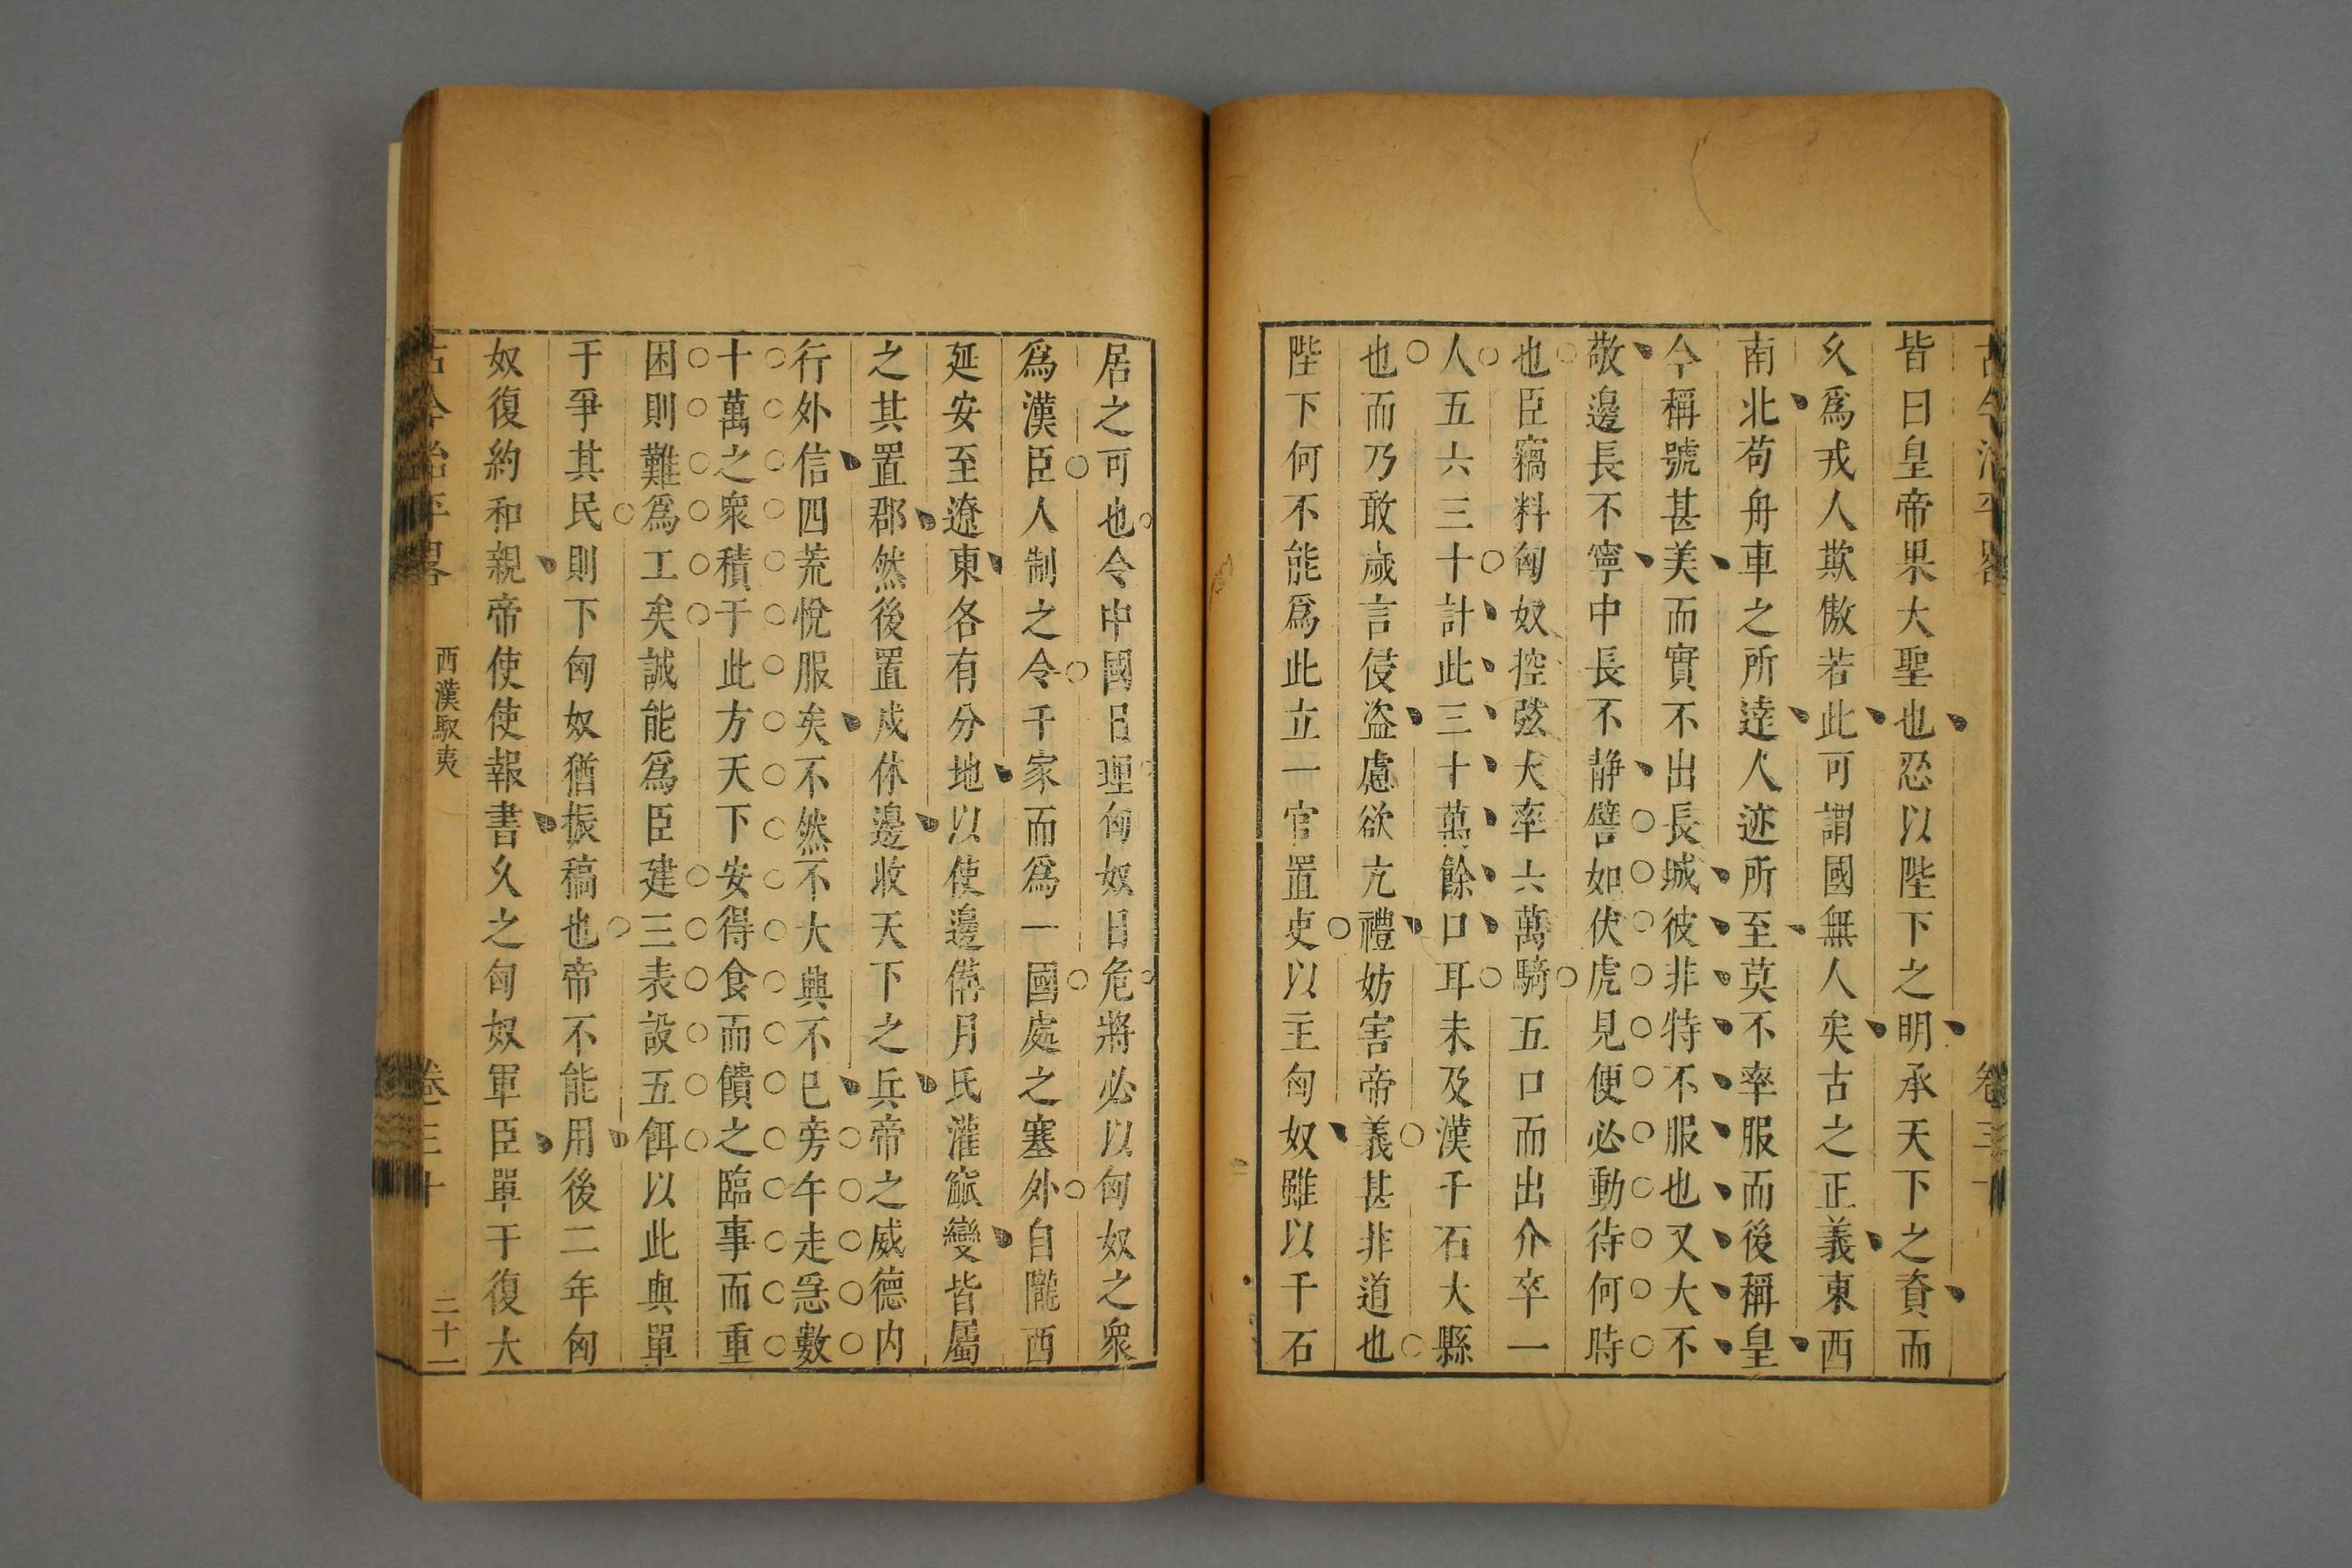 古今治平畧 卷三十
皆曰皇帝果大聖也忍以陛下之明承天下之資而
久爲戎人欺傲若此可謂國無人矣古之正義東西
南北苟舟車之所達人迹所至莫不率服而後稱皇
今稱號甚美而實不出長城彼非特不服也又大不
敬邊長不寧中長不静譬如伏虎見便必動待何時
也臣竊料匈奴控弦大率六萬騎五口而出介卒一
人五六三十計此三十萬餘口耳未及漢千石大縣
也而乃敢歲言侵盗慮欲亢禮妨害帝義甚非道也
陛下何不能爲此立一官置吏以主匈奴雖以千石
居之可也令中國日理匈奴日危將必以匈奴之衆
爲漢臣人制之令千家而爲一國處之塞外自隴西
延安至遼東各有分地以使邊備月氏灌窳變皆屬
之其置郡然後置戍休邊收天下之兵帝之威德内
行外信四荒悅服矣不然不大興不已旁午走急數
十萬之衆積于此方天下安得食而饋之臨事而重
困則難爲工矣誠能爲臣建三表設五餌以此與單
于爭其民則下匈奴猶振稿也帝不能用後二年匈
奴復約和親帝使使報書久之匈奴軍臣單于復大
古今治平畧 西漢馭夷 卷三十 二十一